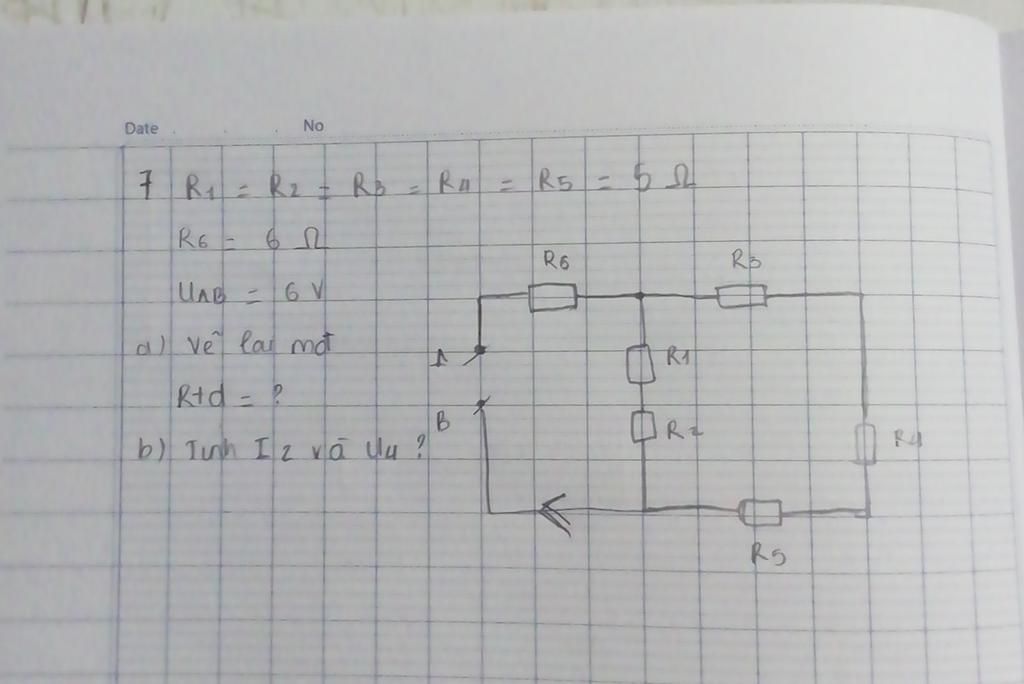 Date No
7 R1 = R2 = R3 = R4 = R5 = 5 Ω
R6 = 6 Ω
UAB = 6 V
a) Vẽ lại mđ
Rtđ = ?
b) Tính I2 và U4 ?
R6 R3
A
R1
B
R2 R4
R5